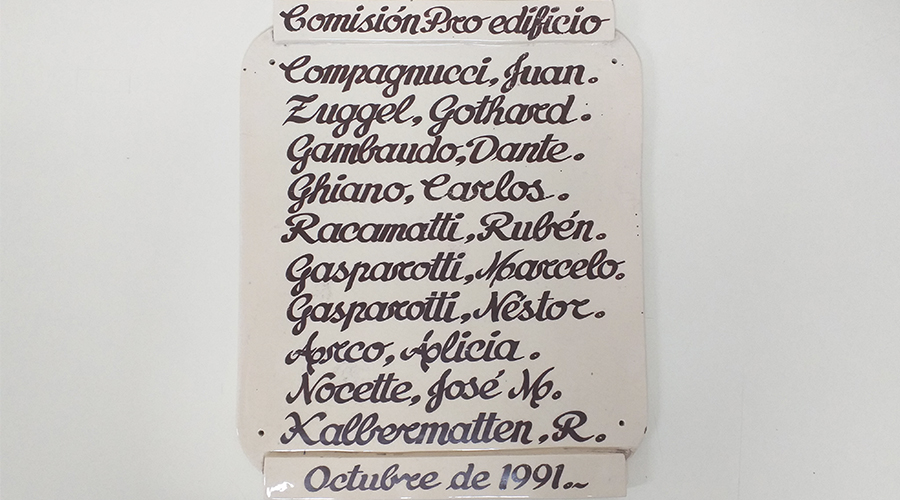 Comisión Pro edificio
Compagnucci, Juan.
Zuggel, Gothard.
Gambaudo, Dante.
Ghiano, Carlos.
Racamatti, Rubén.
Gasparotti, Marcelo.
Gasparotti, Néstor.
Arco, Alicia.
Nocette, José M.
Kalbermatten, R.
Octubre de 1991.~